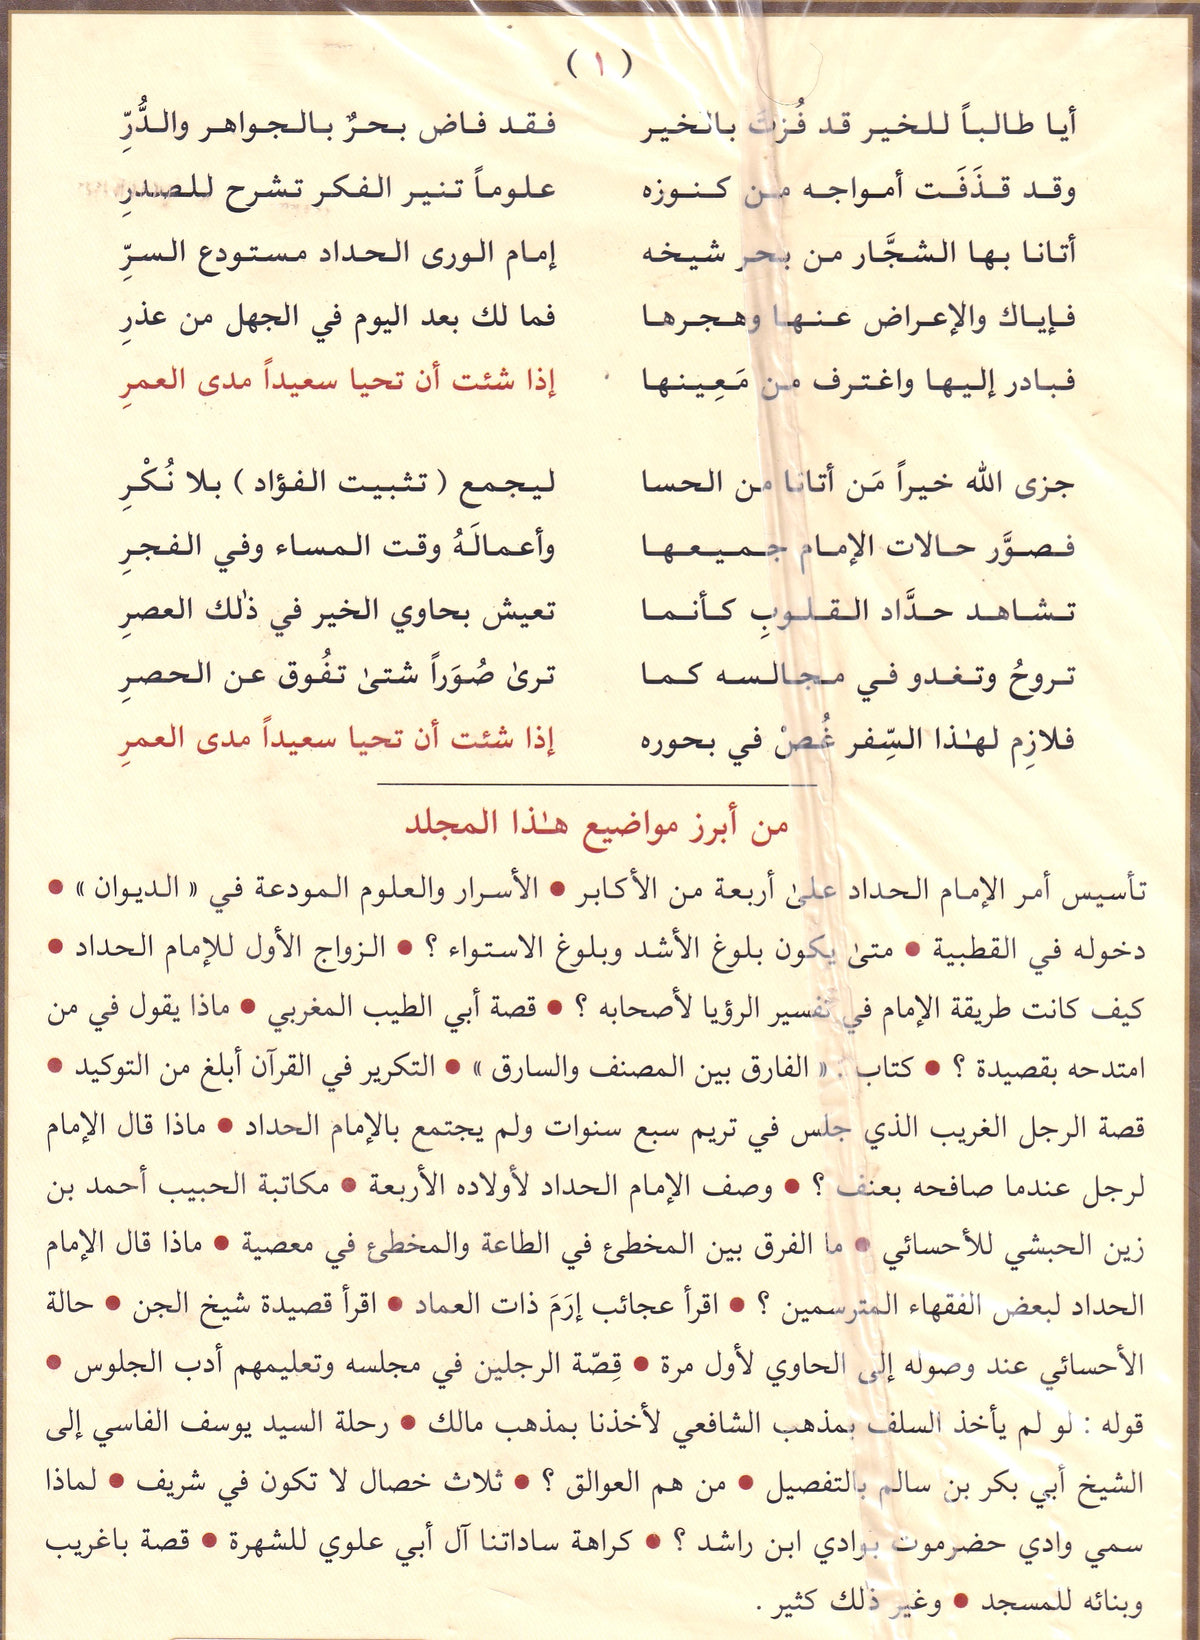 ( ١ )
أيا طالباً للخير قد فُزتَ بالخير فقد فاض بحرٌ بالجواهر والدُّرِّ
وقد قذَفَت أمواجه من كنوزه علوماً تنير الفكر تشرح للصدرِ
أتانا بها الشجَّار من بحر شيخه إمام الورى الحداد مستودع السرِّ
فإياك والإعراض عنها وهجرها فما لك بعد اليوم في الجهل من عذرِ
فبادر إليها واغترف من مَعِينها إذا شئت أن تحيا سعيداً مدى العمرِ
جزى الله خيراً مَن أتانا من الحسا ليجمع ( تثبيت الفؤاد ) بلا نُكْرِ
فصوَّر حالات الإمام جميعها وأعمالَهُ وقت المساء وفي الفجرِ
تشاهد حدَّاد القلوبِ كأنما تعيش بحاوي الخير في ذٰلك العصرِ
تروحُ وتغدو في مجالسه كما ترىٰ صُوَراً شتىٰ تفُوق عن الحصرِ
فلازِم لهٰذا السِّفر غُصْ في بحوره إذا شئت أن تحيا سعيداً مدى العمرِ
من أبرز مواضيع هٰذا المجلد
تأسيس أمر الإمام الحداد علىٰ أربعة من الأكابر ● الأسرار والعلوم المودعة في « الديوان » ●
دخوله في القطبية ● متىٰ يكون بلوغ الأشد وبلوغ الاستواء ؟ ● الزواج الأول للإمام الحداد ●
كيف كانت طريقة الإمام في تفسير الرؤيا لأصحابه ؟ ● قصة أبي الطيب المغربي ● ماذا يقول في من
امتدحه بقصيدة ؟ ● كتاب : « الفارق بين المصنف والسارق » ● التكرير في القرآن أبلغ من التوكيد ●
قصة الرجل الغريب الذي جلس في تريم سبع سنوات ولم يجتمع بالإمام الحداد ● ماذا قال الإمام
لرجل عندما صافحه بعنف ؟ ● وصف الإمام الحداد لأولاده الأربعة ● مكاتبة الحبيب أحمد بن
زين الحبشي للأحسائي ● ما الفرق بين المخطئ في الطاعة والمخطئ في معصية ● ماذا قال الإمام
الحداد لبعض الفقهاء المترسمين ؟ ● اقرأ عجائب إرَمَ ذات العماد ● اقرأ قصيدة شيخ الجن ● حالة
الأحسائي عند وصوله إلى الحاوي لأول مرة ● قِصّة الرجلين في مجلسه وتعليمهم أدب الجلوس ●
قوله : لو لم يأخذ السلف بمذهب الشافعي لأخذنا بمذهب مالك ● رحلة السيد يوسف الفاسي إلى
الشيخ أبي بكر بن سالم بالتفصيل ● من هم العوالق ؟ ● ثلاث خصال لا تكون في شريف ● لماذا
سمي وادي حضرموت بوادي ابن راشد ؟ ● كراهة ساداتنا آل أبي علوي للشهرة ● قصة باغريب
وبنائه للمسجد ● وغير ذلك كثير .